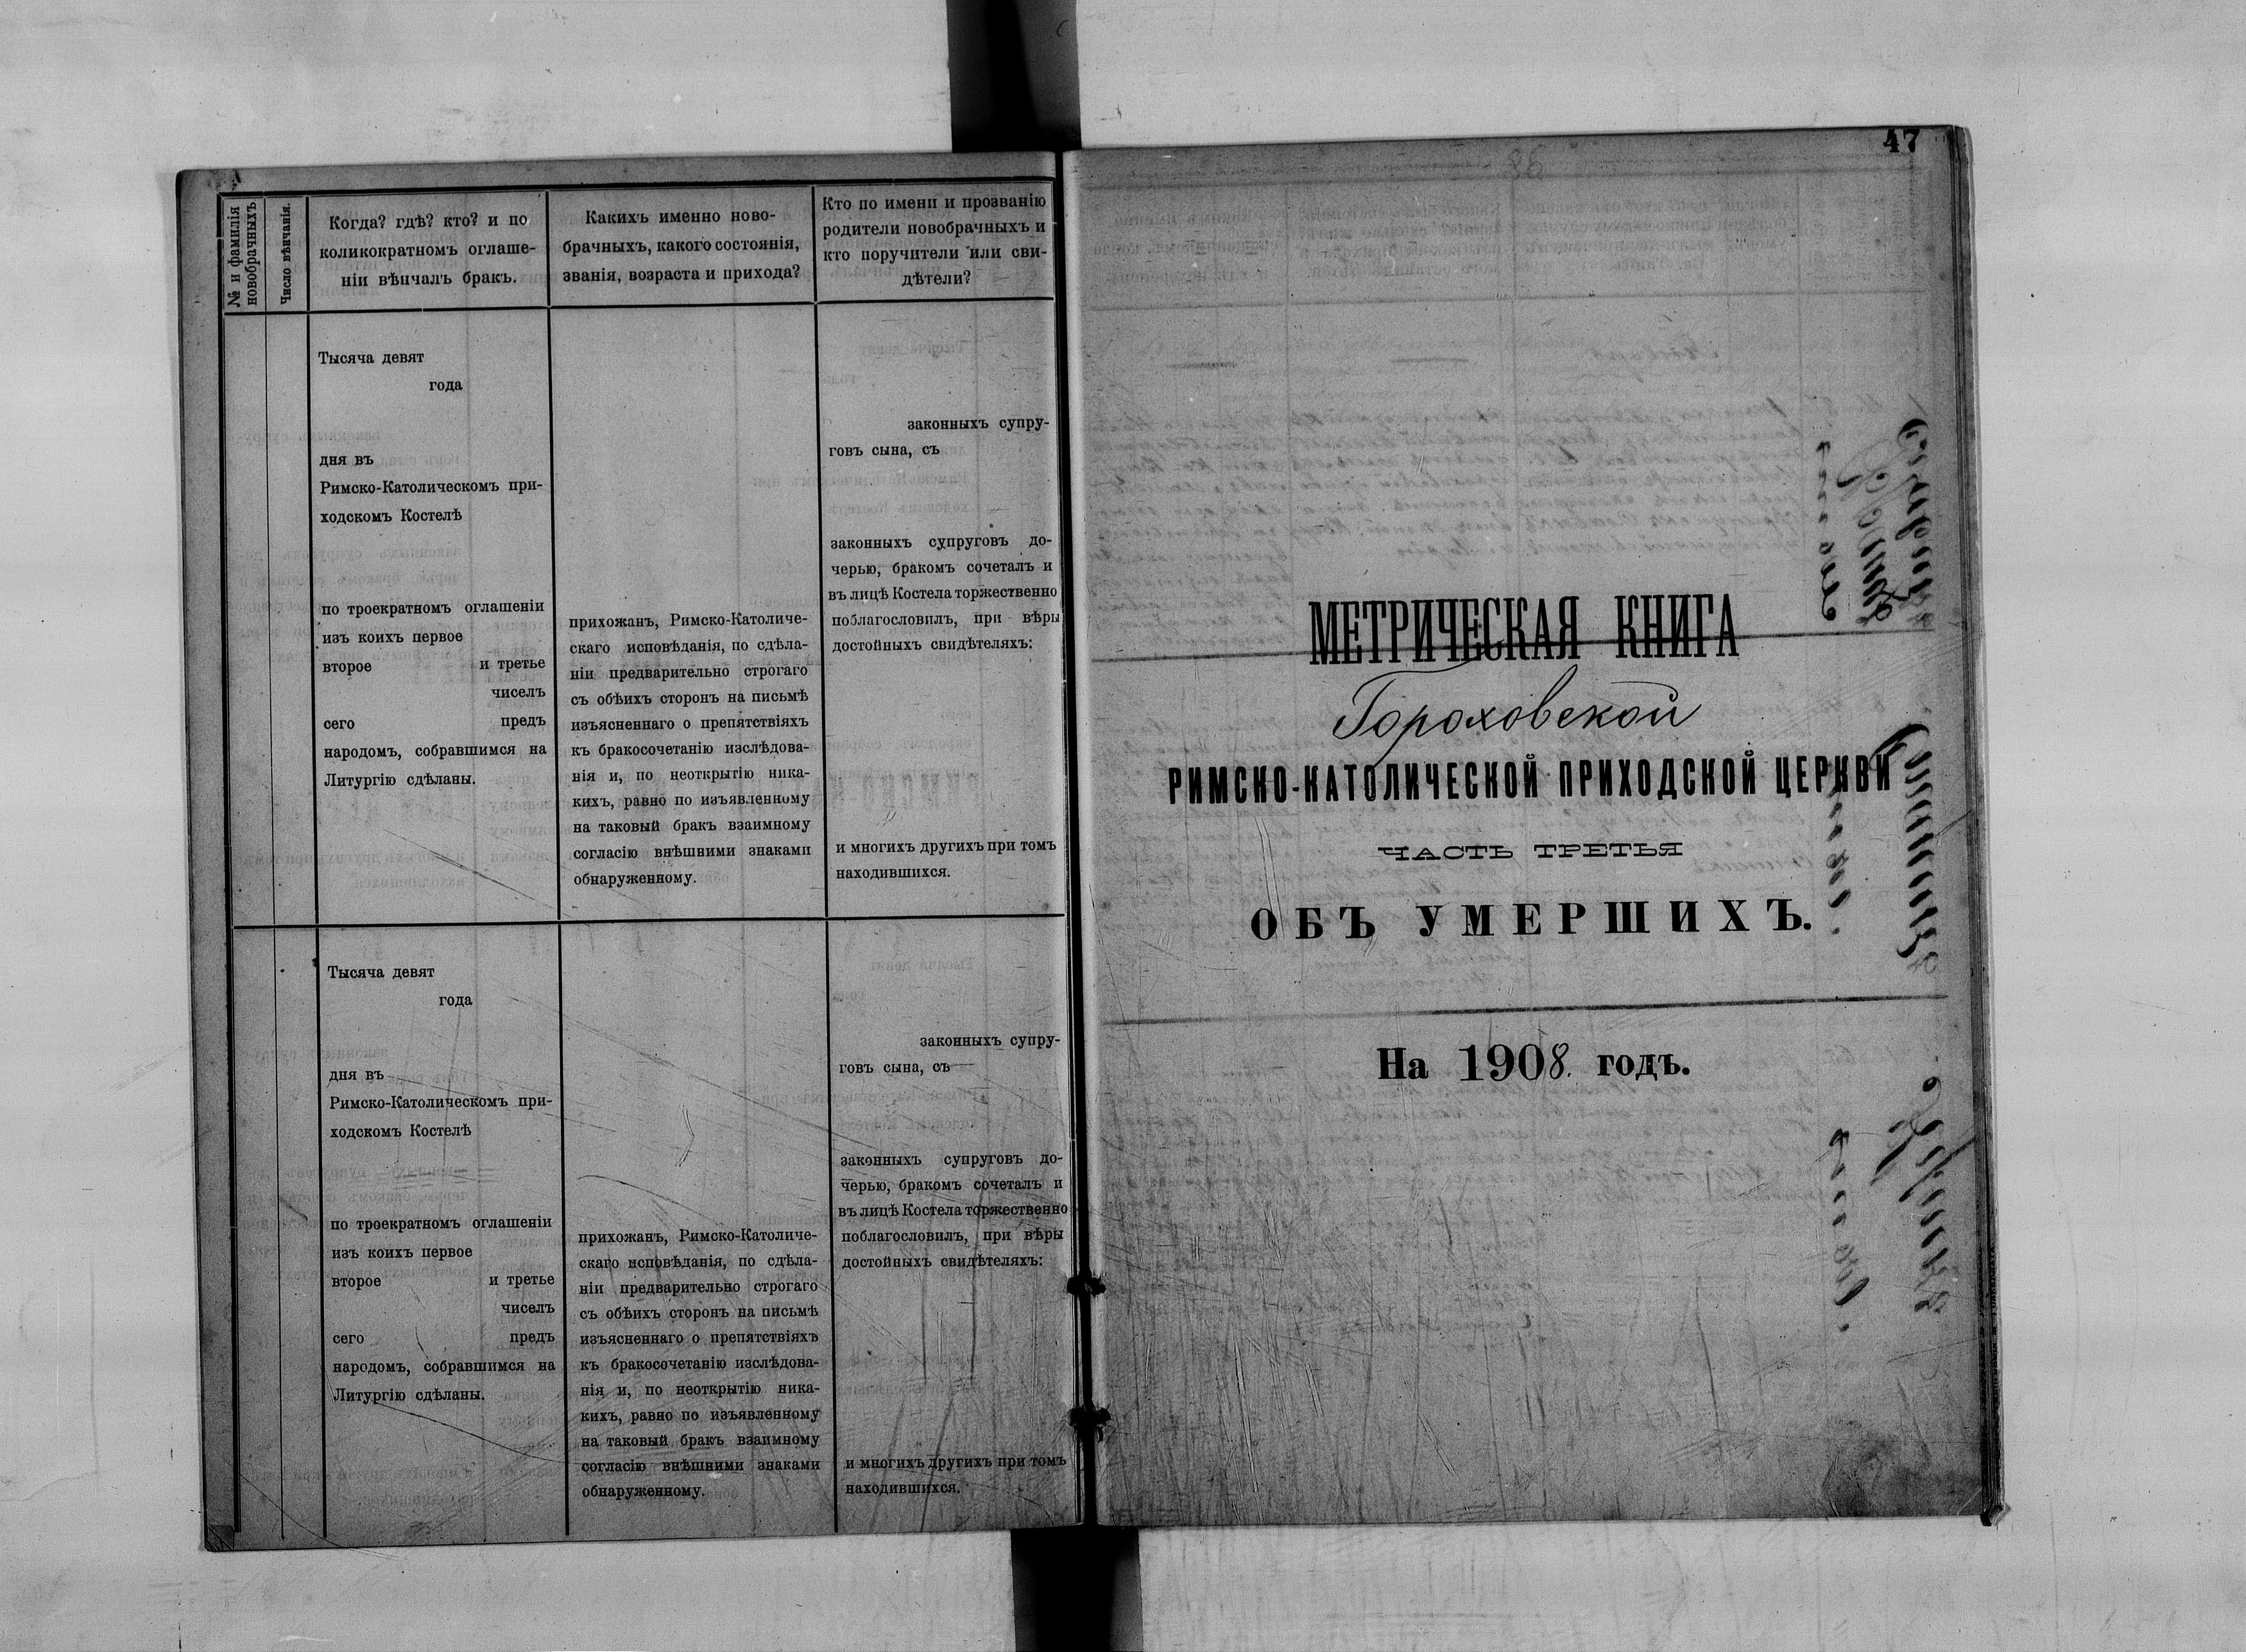 № и фамилія
новобрачныхъ
Число вѣнчанія.
Когда? гдѣ? кто? и по
коликократномъ оглаше-
ніи вѣнчалъ бракъ.
Какихъ именно ново-
брачныхъ, какого состоянія,
званія, возраста и прихода?
Кто по имени и прозванію
родители новобрачныхъ и
кто поручители или сви-
дѣтели?
Тысяча девят
года
дня въ
Римско-Католическомъ при-
ходскомъ Костелѣ
по троекратномъ оглашеніи
изъ коихъ первое
второе и третье
чиселъ
сего предъ
народомъ, собравшимся на
Литургію сдѣланы.
прихожанъ, Римско-Католиче-
скаго исповѣданія, по сдѣла-
ніи предварительно строгаго
съ обѣихъ сторонъ на письмѣ
изъясненнаго о препятствіяхъ
къ бракосочетанію изслѣдова-
нія и, по неоткрытію ника-
кихъ, равно по изъявленному
на таковый бракъ взаимному
согласію внѣшними знаками
обнаруженному.
законныхъ супру-
говъ сына, съ
законныхъ супруговъ до-
черью, бракомъ сочеталъ и
въ лицѣ Костела торжественно
поблагословилъ, при вѣры
достойныхъ свидѣтеляхъ:
и многихъ другихъ при томъ
находившихся.
Тысяча девят
года
дня въ
Римско-Католическомъ при-
ходскомъ Костелѣ
по троекратномъ оглашеніи
изъ коихъ первое
второе и третье
чиселъ
сего предъ
народомъ, собравшимся на
Литургію сдѣланы.
прихожанъ, Римско-Католиче-
скаго исповѣданія, по сдѣла-
ніи предварительно строгаго
съ обѣихъ сторонъ на письмѣ
изъясненнаго о препятствіяхъ
къ бракосочетанію изслѣдова-
нія и, по неоткрытію ника-
кихъ, равно по изъявленному
на таковый бракъ взаимному
согласію внѣшними знаками
обнаруженному.
законныхъ супру-
говъ сына, съ
законныхъ супруговъ до-
черью, бракомъ сочеталъ и
въ лицѣ Костела торжественно
поблагословилъ, при вѣры
достойныхъ свидѣтеляхъ:
и многихъ другихъ при томъ
находившихся.
47
МЕТРИЧЕСКАЯ КНИГА
Гороховской
РИМСКО-КАТОЛИЧЕСКОЙ ПРИХОДСКОЙ ЦЕРКВИ
ЧАСТЬ ТРЕТЬЯ
ОБЪ УМЕРШИХЪ.
На 1908. годъ.